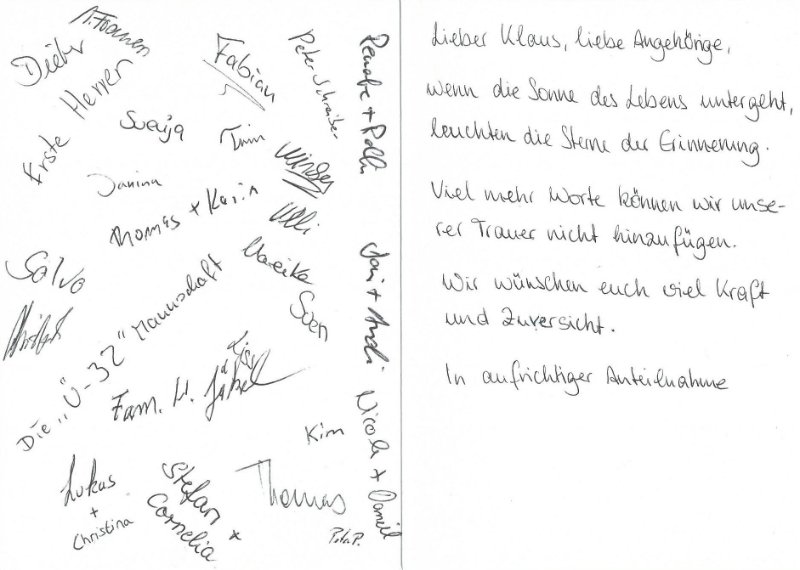 Dieter
Fabian
Peter Schreiber
Renate + Rolli
Erste Herren
Svenja
Timm
Janina
Thomas + Karin
Ulli
Salvo
Mareike
Sven
Die „Ü-32" Mannschaft
Fam. H. Jäkel
Kim
Nicola + Daniel
Lukas
+
Christina
Stefan +
Cornelia
Thomas
Lieber Klaus, liebe Angehörige,
wenn die Sonne des Lebens untergeht,
leuchten die Sterne der Erinnerung.
Viel mehr Worte können wir unse-
rer Trauer nicht hinzufügen.
Wir wünschen euch viel Kraft
und Zuversicht.
In aufrichtiger Anteilnahme